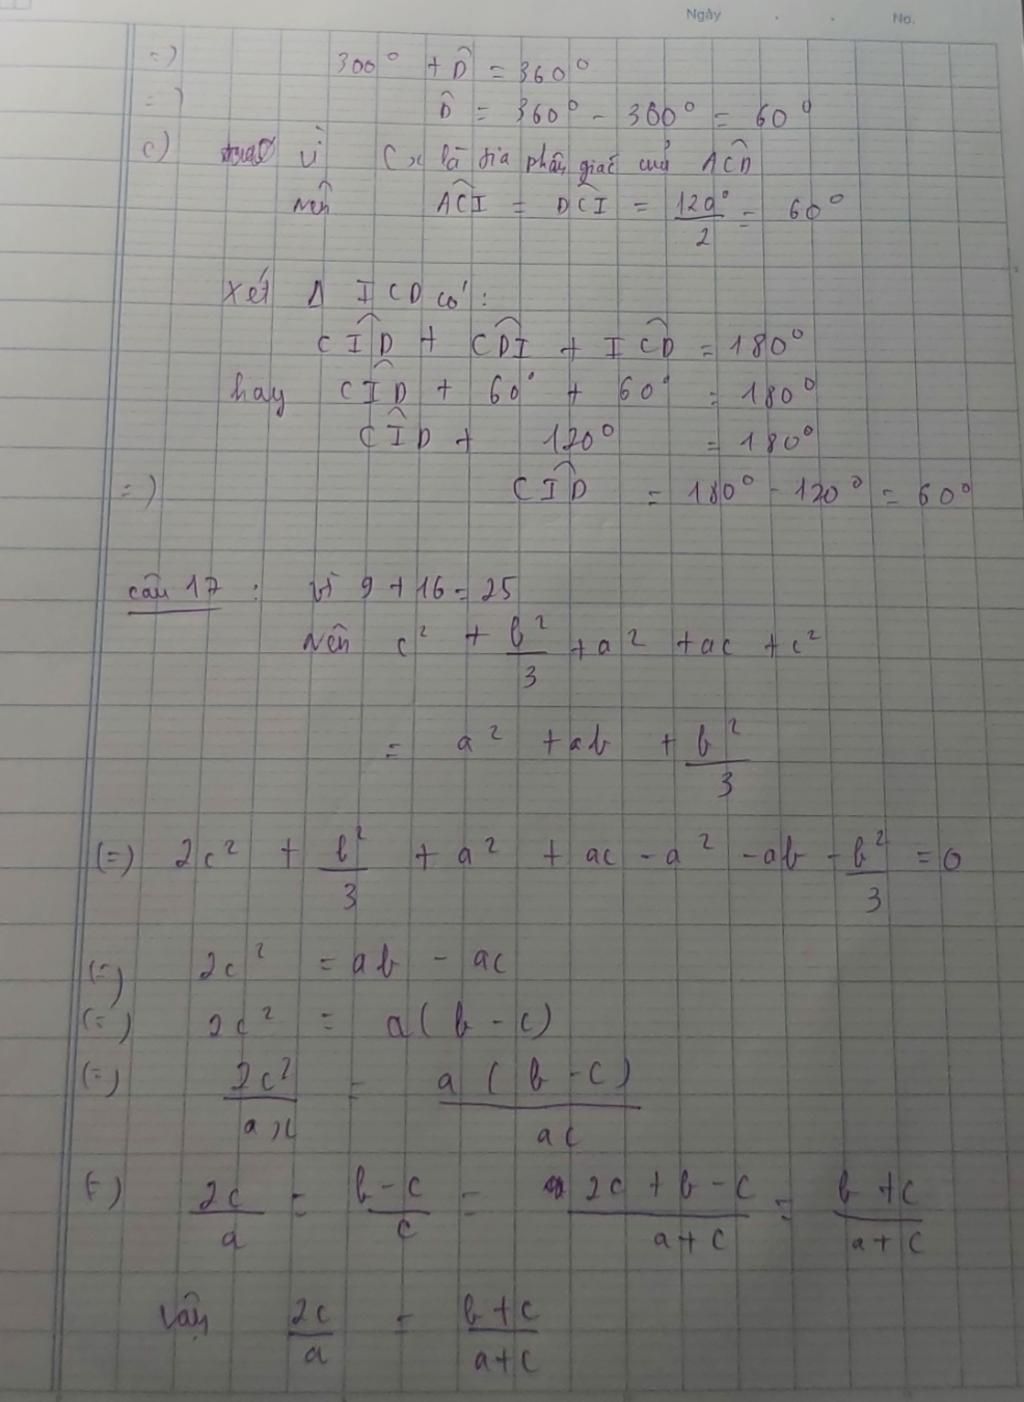 Ngày . . No.
=) 300° + D̂ = 360°
=) D̂ = 360° - 300° = 60°
c) Vì Cx là tia phân giác của AĈD
Nên AĈI = DĈI = 120°/2 = 60°
Xét Δ ICD có:
CÎD + CD̂I + IĈD = 180°
hay CÎD + 60° + 60° = 180°
CÎD + 120° = 180°
=) CÎD = 180° - 120° = 60°
câu 17 : Vì 9 + 16 = 25
Nên c² + b²/3 + a² + ac + c²
= a² + ab + b²/3
(=) 2c² + b²/3 + a² + ac - a² - ab - b²/3 = 0
(=) 2c² = ab - ac
(=) 2c² = a(b - c)
(=) 2c²/ac = a(b - c)/ac
(=) 2c/a = b - c/c = 2c + b - c/a + c = b + c/a + c
Vậy 2c/a = b + c/a + c